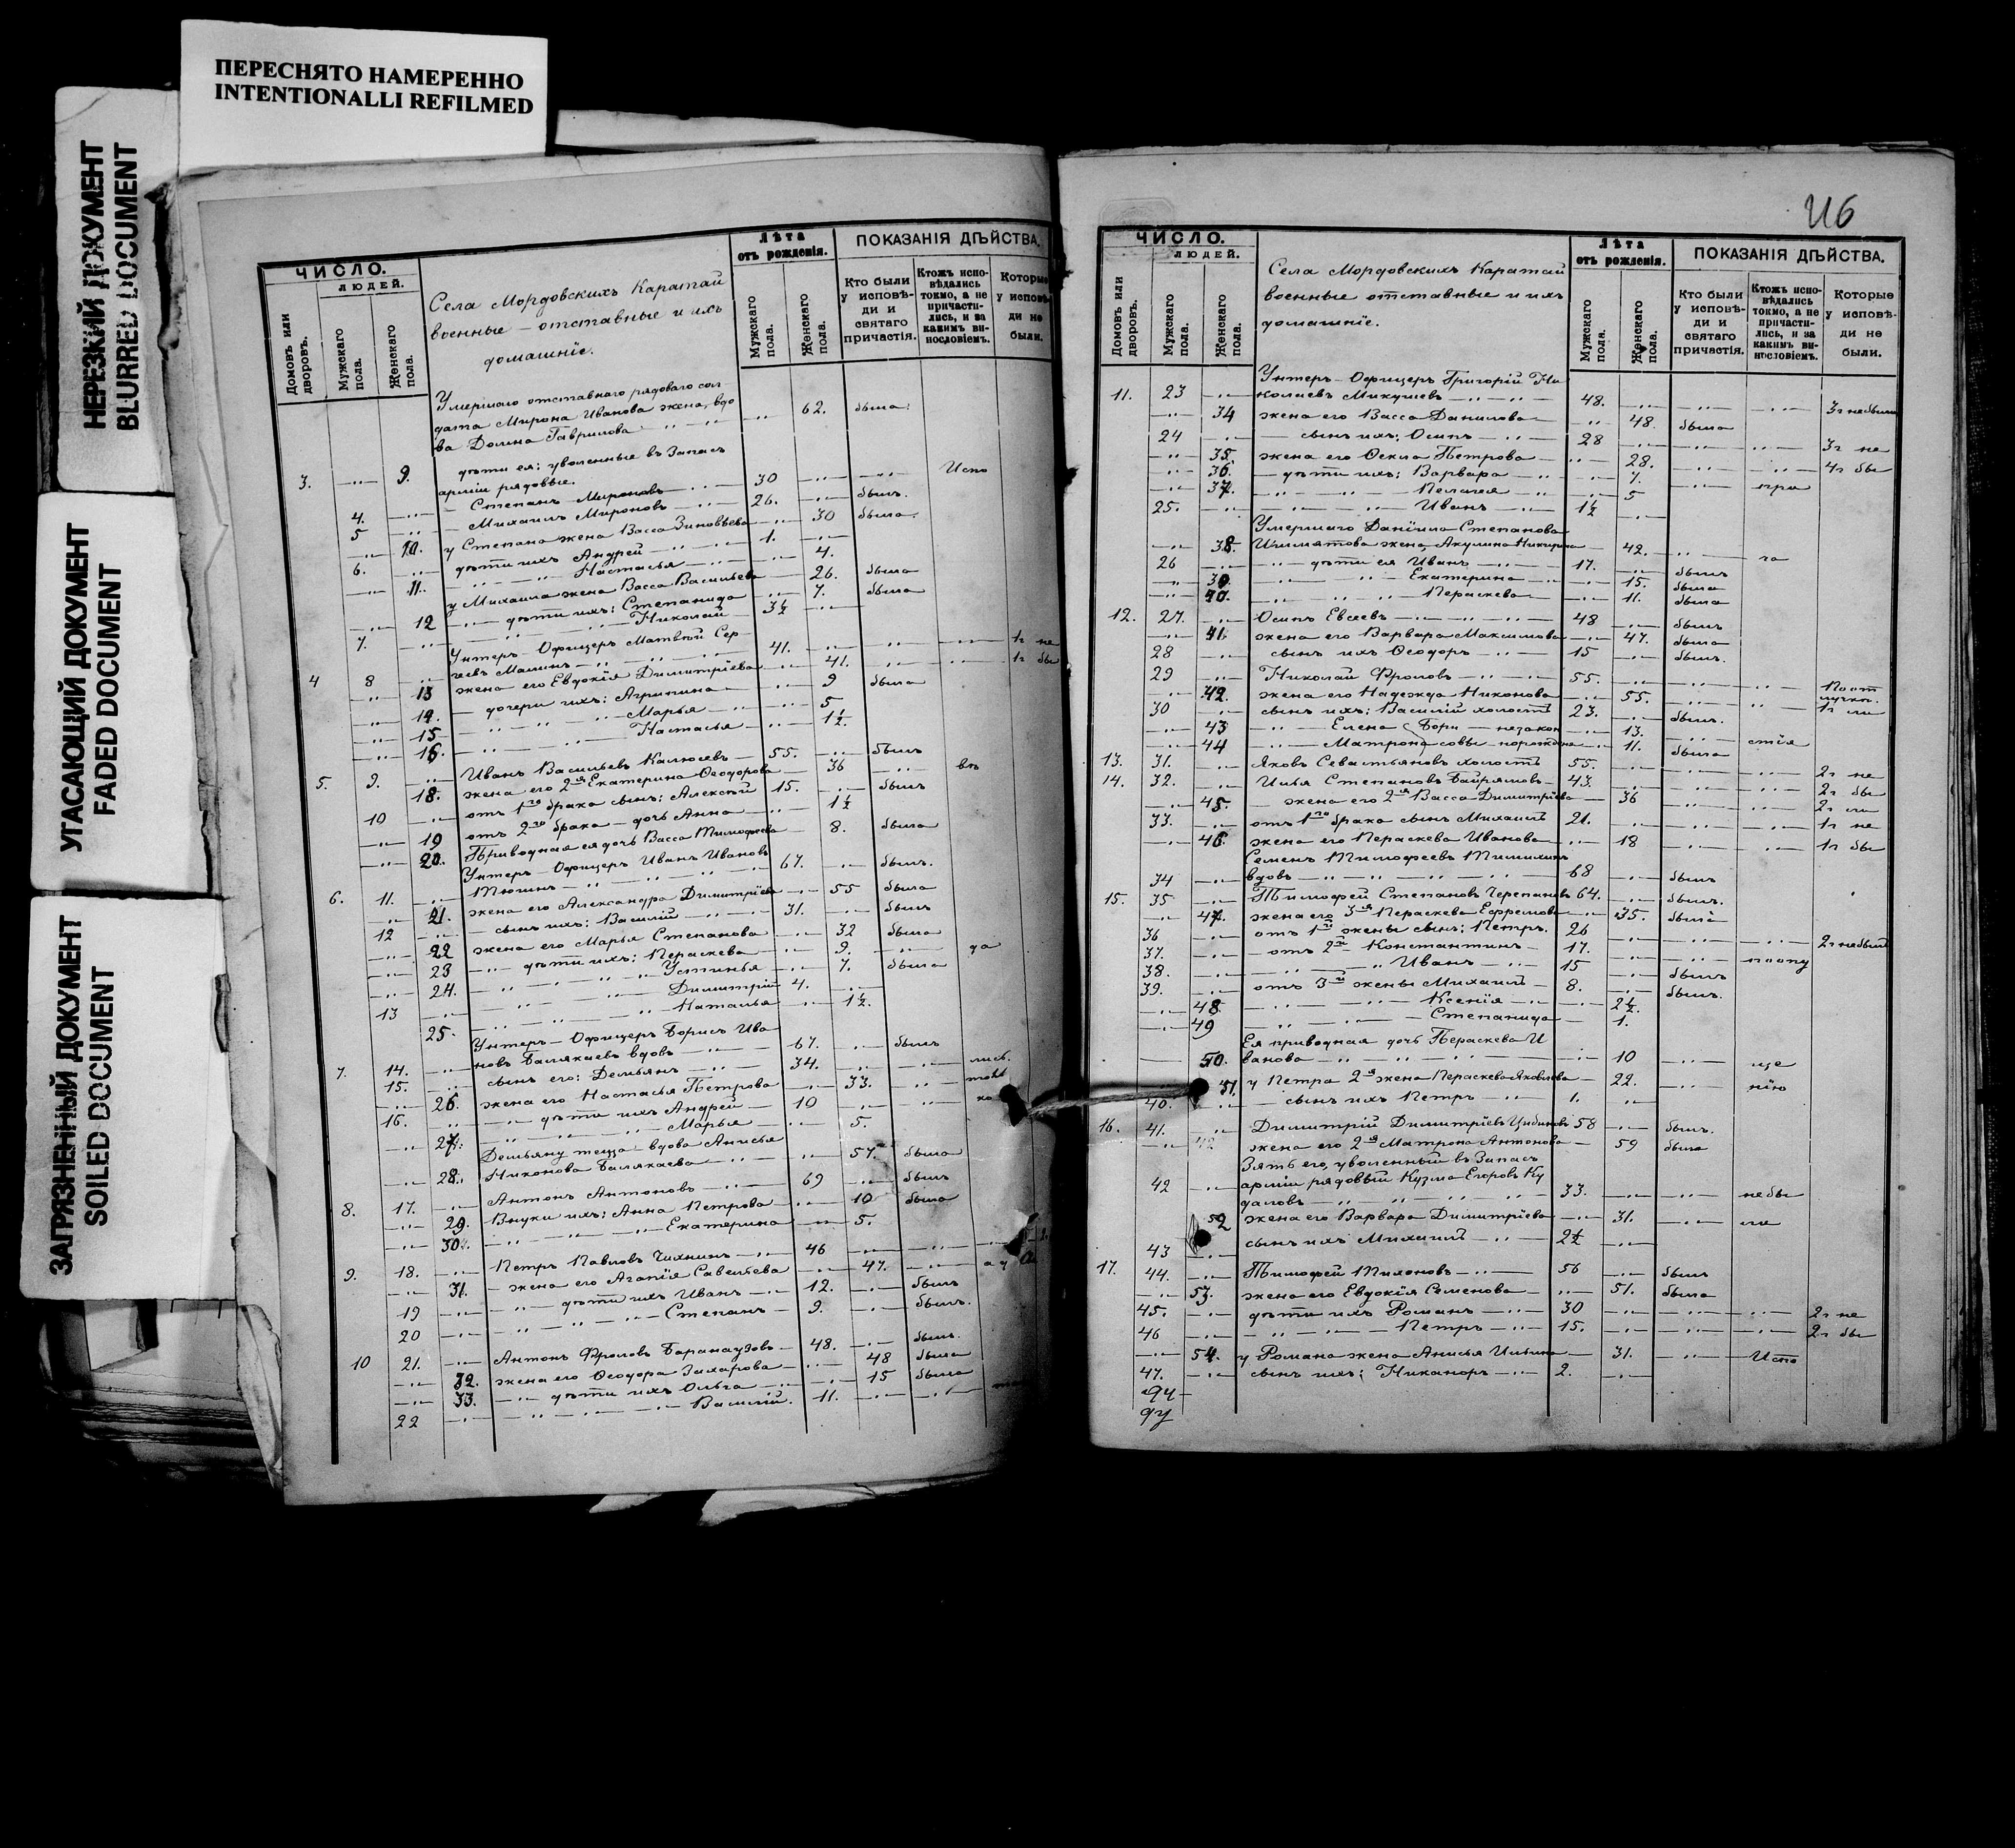 ПЕРЕСНЯТО НАМЕРЕННО
INTENTIONALLI REFILMED
НЕРЕЗКИЙ ДОКУМЕНТ
BLURRED DOCUMENT
УГАСАЮЩИЙ ДОКУМЕНТ
FADED DOCUMENT
ЗАГРЯЗНЕННЫЙ ДОКУМЕНТ
SOILED DOCUMENT
ЧИСЛО.
ЛЮДЕЙ.
Домовъ или дворовъ.
Мужскаго пола.
Женскаго пола.
Села Мордовскихъ Каратай
военные – отставные и ихъ
домашніе.
Лѣта
отъ рожденія.
Мужскаго пола.
Женскаго пола.
ПОКАЗАНІЯ ДѢЙСТВА.
Кто были у исповѣди и святаго причастія.
Ктожъ исповѣдались токмо, а не причастились, и за какимъ винословіемъ.
Которые у исповѣди не были.
Умершаго отставнаго рядоваго сол-
дата Мирона Иванова жена, вдо
3. 9. ва Домна Гаврилова 62. была
дѣти ея: уволенные въ Запасъ
арміи рядовые.
4. Степанъ Мироновъ 30 Испо
5 Михаилъ Мироновъ 26. былъ.
10. у Степана жена Васса Зиновьева 30 была
6. дѣти ихъ Андрей 1.
11. Настасья 4.
12 у Михаила жена Васса Васильева 26. была
дѣти ихъ: Степанида 7. была
7. Николай 3½
Унтеръ-Офицеръ Матвѣй Сер-
4 8 геевъ Малинъ 41. 1г не
13 жена его Евдокія Димитріева 41. 1г бы
14. дочери ихъ: Агрипина 9 была
15 Марья 5
16. Настасья 1½.
5. 9. Иванъ Васильевъ Калюсевъ 55. былъ
18. жена его 2я Екатерина Ѳеодорова 36 въ
10 отъ 1го брака сынъ: Алексѣй 15. былъ
19 отъ 2го брака – дочь Анна 1½
20. Приводная ея дочь Васса Тимофеева 8. была
Унтеръ-Офицеръ Иванъ Ивановъ
6. 11. Тюгинъ 67. былъ.
21. жена его Александра Димитріева 55 была
12 сынъ ихъ: Василій 31. былъ
22 жена его Марья Степанова 32 была
23 дѣти ихъ: Пераскева 9. да
24. Устинья 7. была
13 Димитрій 4.
25. Наталья 1½.
Унтеръ-Офицеръ Борисъ Ива
7. 14. новъ Балякаевъ вдовъ 67. былъ
15. сынъ его: Демьянъ 34. лись.
26. жена его Настасья Петрова 33.
16. дѣти ихъ Андрей 10
27. Марья 5.
Демьяну теща вдова Анисья
28. Никонова Балякаева 57. была
8. 17. Антонъ Антоновъ 69 былъ
29 Внуки ихъ: Анна Петрова 10 была
30. Екатерина 5.
9. 18. Петръ Павловъ Чихнинъ 46
31. жена его Агапія Савельева 47.
19 дѣти ихъ Иванъ 12. былъ
20 Степанъ 9. былъ.
10 21. Антонъ Фроловъ Баранаузовъ 48. былъ.
32. жена его Ѳеодора Захарова 48 была
33. дѣти ихъ Ольга 15 была
22 Василій. 11.
116
ЧИСЛО.
ЛЮДЕЙ.
Домовъ или дворовъ.
Мужскаго пола.
Женскаго пола.
Села Мордовскихъ Каратай
военные отставные и ихъ
домашніе.
Лѣта
отъ рожденія.
Мужскаго пола.
Женскаго пола.
ПОКАЗАНІЯ ДѢЙСТВА.
Кто были у исповѣди и святаго причастія.
Ктожъ исповѣдались токмо, а не причастились, и за какимъ винословіемъ.
Которые у исповѣди не были.
Унтеръ-Офицеръ Григорій Ни
11. 23 колаевъ Микушевъ 48. 3г небыли
34 жена его Васса Данилова 48. была
24 сынъ ихъ: Осипъ 28 3г не
35. жена его Ѳекла Петрова 28. 4г бы
36. дѣти ихъ: Варвара 7. пра
37. Пелагея 5
25. Иванъ 1½
Умершаго Даніила Степанова
38. жена Акулина Никитина 42. ча
26 дѣти ея Иванъ 17. былъ
39. Екатерина 15. была
40. Пераскева 11. была
12. 27. Осипъ Евсеевъ 48 былъ
41. жена его Варвара Максимова 47. была
28 сынъ ихъ Ѳеодоръ 15 былъ.
29 Николай Фроловъ 55.
42. жена его Надежда Никонова 55.
30 сынъ ихъ: Василій холостъ 23. былъ. 1г ли
43 Елена Бори незакон 13.
44 Матрона совы порождена 11. была стія
13. 31. Яковъ Севастьяновъ холостъ 55. 2г не
14. 32. Илья Степановъ Байряшовъ 43. 2г бы
45. жена его 2я Васса Димитріева 36 2г ли
33. отъ 1го брака сынъ Михаилъ 21. 1г не
46. жена его Пераскева Иванова 18 1г бы
Семенъ Тимофеевъ Тимихинъ
34 вдовъ 68 былъ
15. 35 Тимофей Степановъ Черепановъ 64. былъ.
47. жена его 3я Пераскева Ефремова 35. была
36 отъ 1й жены сынъ: Петръ. 26 2г небылъ
37. отъ 2й Константинъ 17.
38. Иванъ 15 былъ
39. отъ 3й жены Михаилъ 8. былъ.
48. Ксенія 2½.
49 Степанида 1.
Ея приводная дочь Пераскева И
50. ванова 10 ще
51. у Петра 2я жена Пераскева Яковлева 22. нію
40. сынъ ихъ Петръ 1.
16. 41. Димитрій Димитріевъ Цибиковъ 58 былъ.
жена его 2я Матрона Антонова 59 была
Зять его, уволенный въ Запасъ
42 арміи рядовый Кузма Егоровъ Ку
даловъ 33. небы
52 жена его Варвара Димитріева 31. ли
43 сынъ ихъ Михаилъ 2½
17. 44. Тимофей Тихоновъ 56 былъ
53. жена его Евдокія Семенова 51. была
45. дѣти ихъ Романъ 30 2г не
46 Петръ 15. 2г бы
54. у Романа жена Анисья Ильина 31. Испо
47. сынъ ихъ: Никаноръ 2.